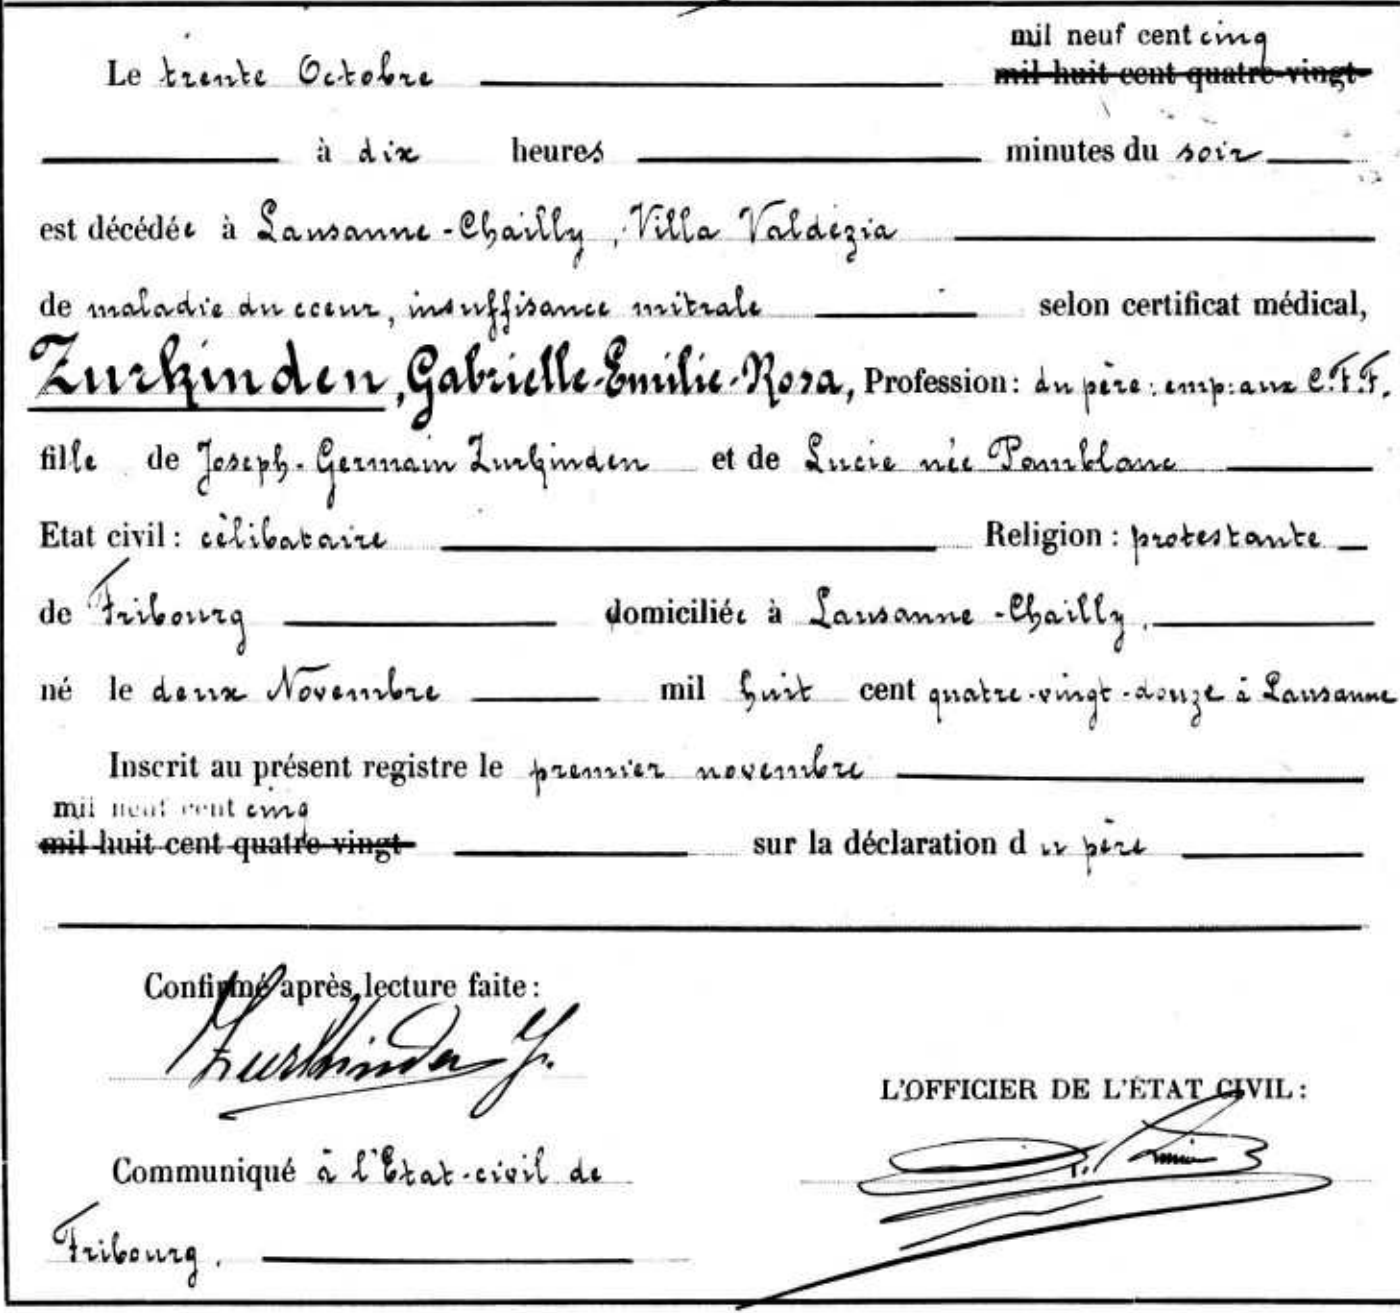 mil neuf cent cinq
Le trente Octobre mil huit cent quatre-vingt-
à dix heures minutes du soir
est décédée à Lausanne-Chailly, Villa Valdézia
de maladie du cœur, insuffisance mitrale selon certificat médical,
Zurkinden, Gabrielle-Emilie-Rosa, Profession: du père: emp: aux C.F.F.
fille de Joseph-Germain Zurkinden et de Lucie née Pamblanc
Etat civil: célibataire Religion: protestante
de Fribourg domiciliée à Lausanne-Chailly.
né le deux Novembre mil huit cent quatre-vingt-douze à Lausanne
Inscrit au présent registre le premier novembre
mil neuf cent cinq
mil huit cent quatre-vingt- sur la déclaration du père
Confirmé après lecture faite:
Zurkinden J.
L'OFFICIER DE L'ÉTAT CIVIL:
Communiqué à l'Etat-civil de
Fribourg.